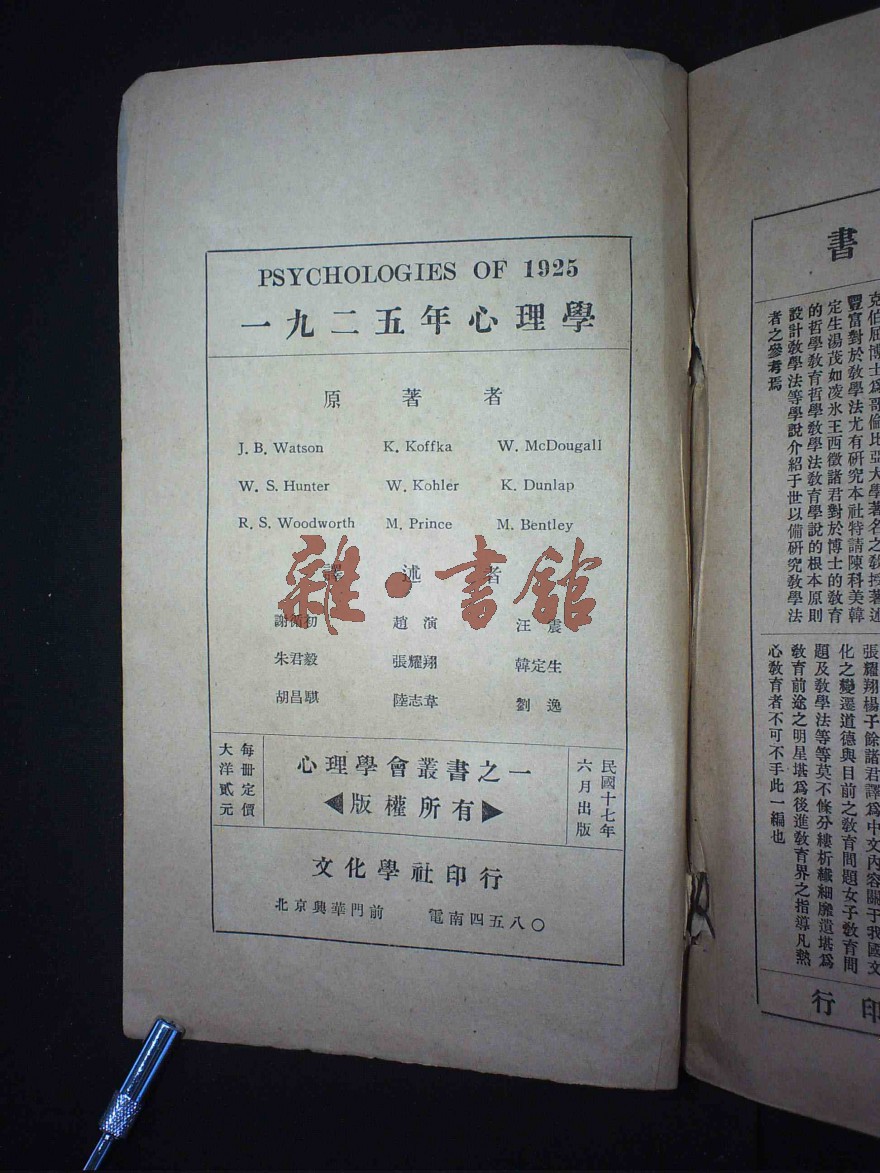 PSYCHOLOGIES OF 1925
一九二五年心理學
原著者
J. B. Watson K. Koffka W. McDougall
W. S. Hunter W. Kohler K. Dunlap
R. S. Woodworth M. Prince M. Bentley
譯述者
雜·書館
謝循初 趙演 汪震
朱君毅 張耀翔 韓定生
胡昌騏 陸志韋 劉逸
民國十七年
六月出版
心理學會叢書之一
◀版權所有▶
每冊定價
大洋貳元
文化學社印行
北京興華門前 電南四五八〇
書
克伯屈博士爲哥倫比亞大學著名之敎授著述
豐富對於敎學法尤有硏究本社特請陳科美韓
定生湯茂如凌氷王西徵諸君對於博士的敎育
的哲學敎育哲學敎學法敎育學說的根本原則
設計敎學法等學說介紹于世以備硏究敎學法
者之參考焉
張耀翔楊子餘諸君譯爲中文內容關于我國文
化之變遷道德與目前之敎育問題女子敎育問
題及敎學法等等莫不條分縷析纖細靡遺堪爲
敎育前途之明星堪爲後進敎育界之指導凡熱
心敎育者不可不手此一編也
印行